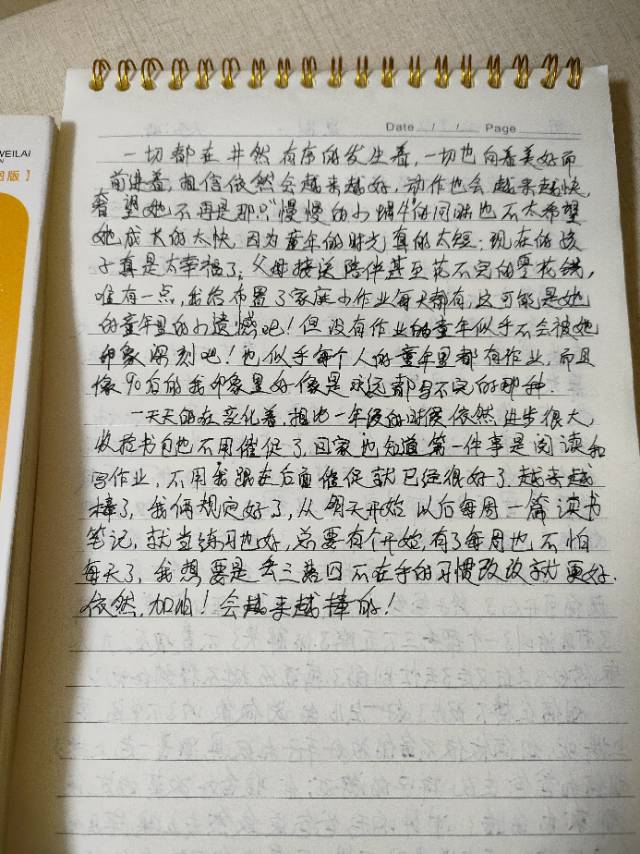 WEILAI
版】
Date / / Page
一切都在井然有序的发生着,一切也向着美好而
前进着,相信依然会越来越好,动作也会越来越快,
希望她不再是那只"慢慢的小蜗牛"的同时也不太希望
她成长的太快,因为童年的时光真的太短;现在的孩
子真是太幸福了,父母接送陪伴甚至花不完的零花钱,
唯有一点,我给布置了家庭小作业每天都有,这可能是她
的童年里的小遗憾吧!但没有作业的童年似乎不会被她
印象深刻吧!也似乎每个人的童年里都有作业,而且
像90后的我印象里好像是永远都写不完的那种.
一天天的在变化着,相比一年级的时候依然进步很大,
收拾书包也不用催促了,回家也知道第一件事是阅读和
写作业,不用我跟在后面催促就已经很好了,越来越
棒了,我俩规定好了,从明天开始以后每周一篇读书
笔记,就当练习也好,总要有个开始,有了每周也不怕
每天了,我想要是丢三落四不在乎的习惯改改就更好.
依然,加油!会越来越棒的!